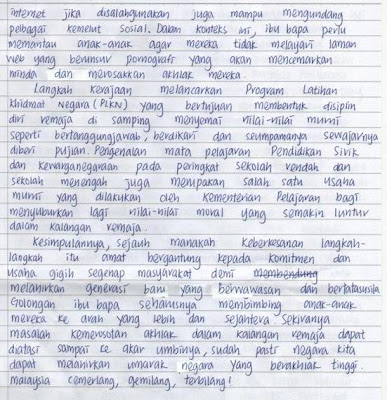 internet jika disalahgunakan juga mampu mengundang
pelbagai kemelut sosial. Dalam konteks ini, ibu bapa perlu
memantau anak-anak agar mereka tidak melayari laman
web yang berunsur pornografi yang akan mencemarkan
minda dan merosakkan akhlak mereka.
Langkah kerajaan melancarkan Program Latihan
Khidmat Negara (PLKN) yang bertujuan membentuk disiplin
diri remaja di samping menyemai nilai-nilai murni
seperti bertanggungjawab, berdikari dan seumpamanya sewajarnya
diberi pujian. Pengenalan mata pelajaran Pendidikan Sivik
dan Kewarganegaraan pada peringkat sekolah rendah dan
sekolah menengah juga merupakan salah satu usaha
murni yang dilakukan oleh Kementerian Pelajaran bagi
menyuburkan lagi nilai-nilai moral yang semakin luntur
dalam kalangan remaja.
Kesimpulannya, sejauh manakah keberkesanan langkah-
langkah itu amat bergantung kepada komitmen dan
usaha gigih segenap masyarakat demi membendung
melahirkan generasi baru yang berwawasan dan bertatasusila
Golongan ibu bapa seharusnya membimbing anak-anak
mereka ke arah yang lebih dan sejahtera Sekiranya
masalah kemerosotan akhlak dalam kalangan remaja dapat
diatasi sampai ke akar umbinya, sudah pasti negara kita
dapat melahirkan umarak negara yang berakhlak tinggi.
malaysia cemerlang, gemilang, terbilang!